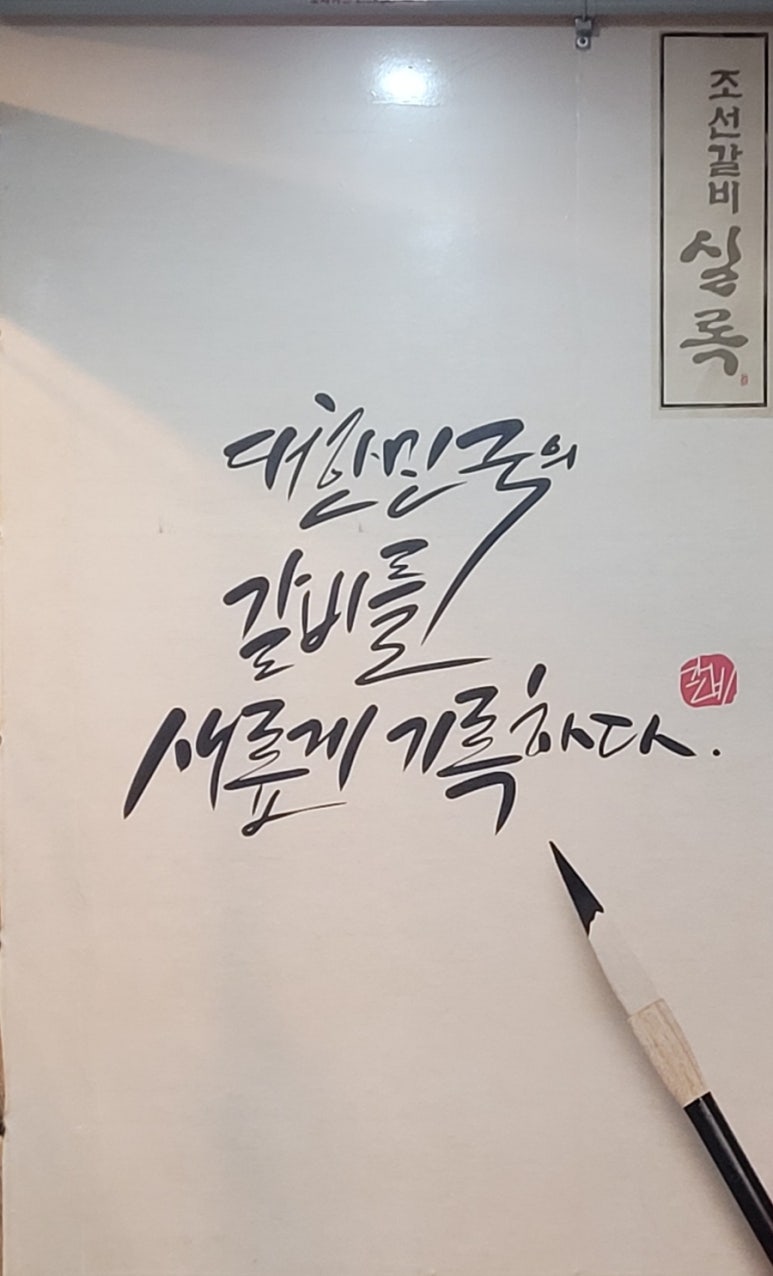 조선갈비
실록
대한민국의
갈비를
새롭게 기록하다.